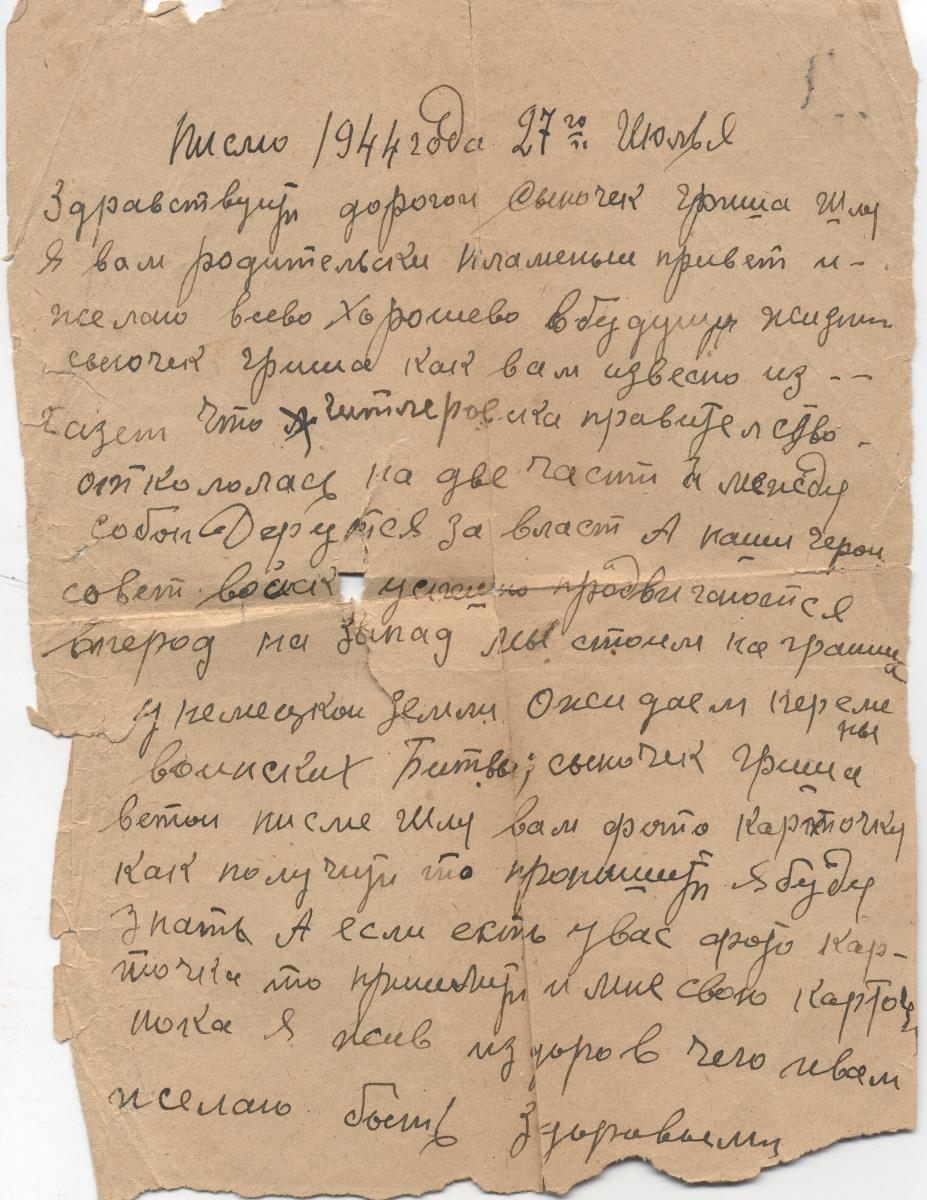 писмо 1944 года 27го Июлья
Здравствуйти дорогой Сыночек Гриша Шлу
Я вам родительски пламеныи привет и -
желаю всево Хорошево вбудущи жизни
сыночек Гриша как вам извесно из --
Газет Что гитлеровска правительство -
откололась на две части и между
собои Дерутся за власт А наши герои
совет войск успешно продвигаются
вперод на Запад мы стоим на границ
у немецкои Земли Ожидаем переме
ны
воинских Битвы; сыночек Гриша
ветои писме Шлу вам фото карточку
как получити то пропишити Я буду
Знать А если екть увас фото кар-
точка то пришлити и мне свою карточ
пока Я жив издоров чего ивам
желаю быть Здоровыми